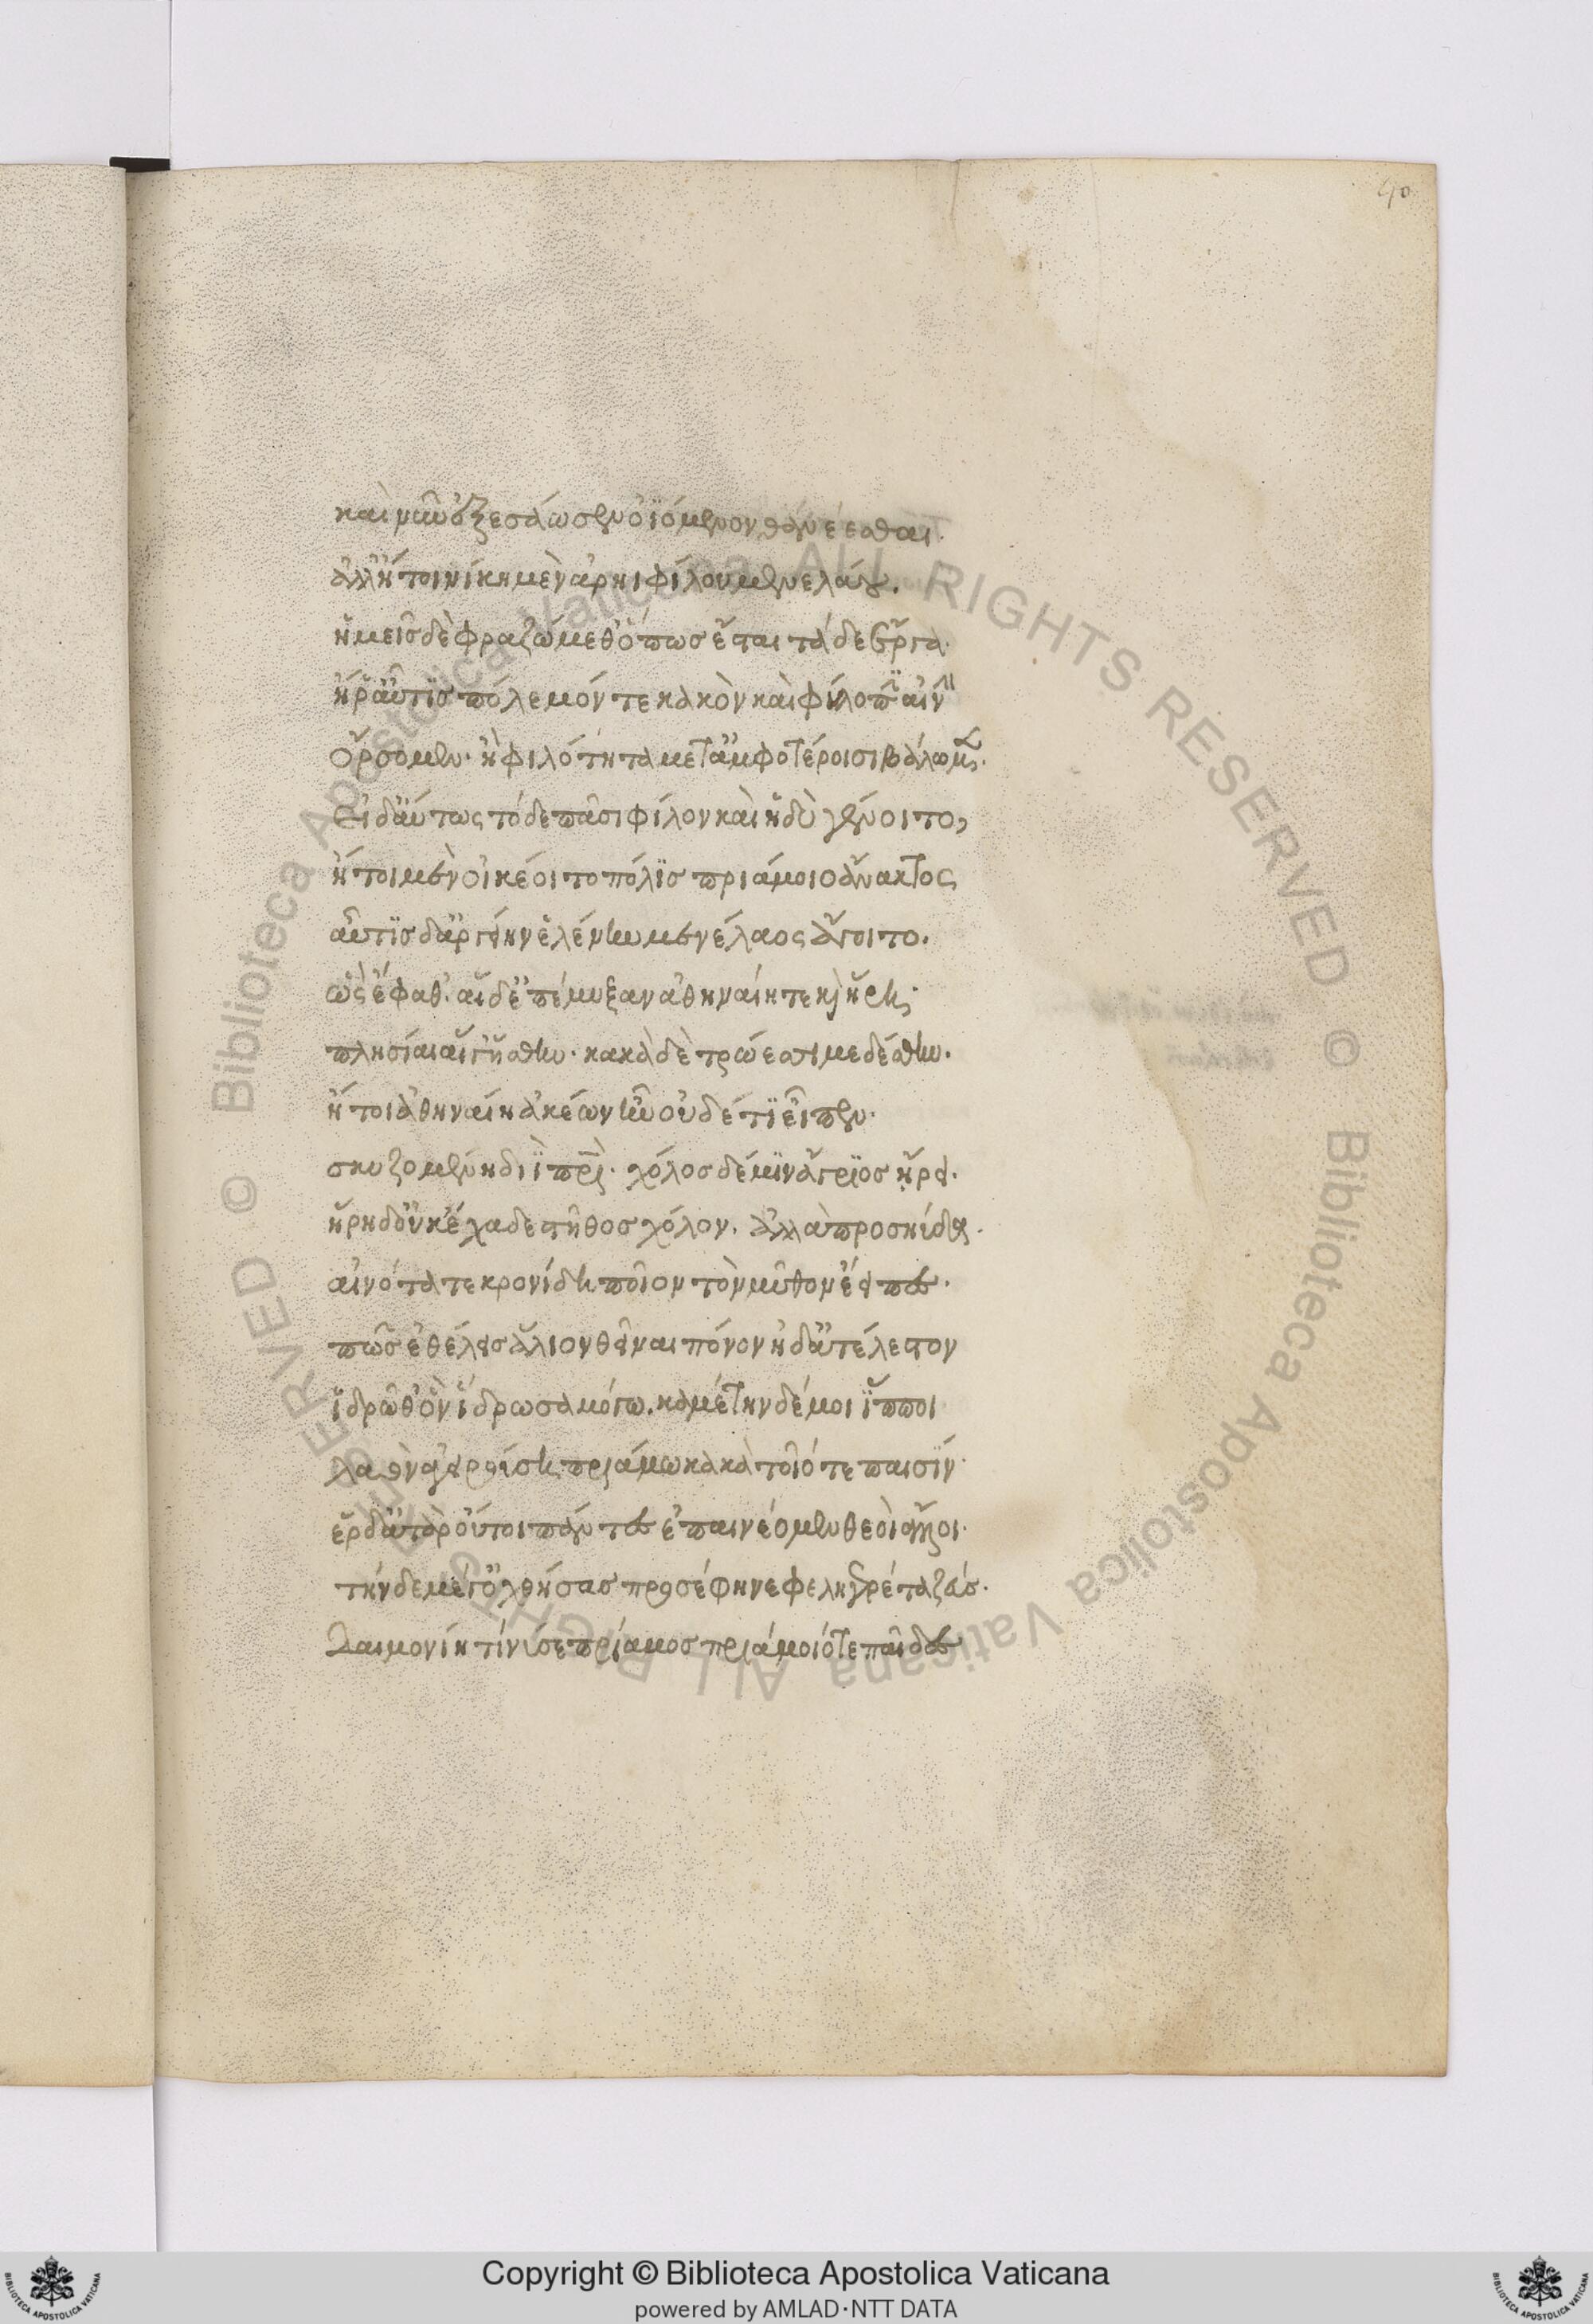 40
καὶ νῦν ἐξεσάωσεν ὀϊόμενον θανέεσθαι.
ἀλλ' ἤτοι νίκη μὲν ἀρηϊφίλου μενελάου.
ἡμεῖς δὲ φραζώμεθ' ὅπως ἔσται τάδε ἔργα.
ἤ ῥ' αὖτις πόλεμόν τε κακὸν καὶ φύλοπιν αἰνὴν
ὄρσομεν. ἢ φιλότητα μετ' ἀμφοτέροισι βάλωμεν.
εἰ δ' αὕτως τόδε πᾶσι φίλον καὶ ἡδὺ γένοιτο,
ἤτοι μὲν οἰκέοιτο πόλις πριάμοιο ἄνακτος
αὖτις δ' ἀργείην ἑλένην μενέλαος ἄγοιτο.
ὣς ἔφαθ'. αἱ δ' ἐπέμυξαν ἀθηναίη τε καὶ ἥρη.
πλησίαι αἵ γ' ἥσθην. κακὰ δὲ τρώεσσι μεδέσθην.
ἤτοι ἀθηναίη ἀκέων ἦν οὐδέ τι εἶπεν.
σκυζομένη διῒ πατρὶ. χόλος δέ μιν ἄγριος ᾕρει.
ἥρη δ' οὐκ ἔχαδε στῆθος χόλον. ἀλλὰ προσηύδα.
αἰνότατε κρονίδη ποῖον τὸν μῦθον ἔειπες.
πῶς ἐθέλεις ἅλιον θεῖναι πόνον ἠδ' ἀτέλεστον
ἱδρῶ θ' ὃν ἵδρωσα μόγω. καμέτην δέ μοι ἵπποι
λαὸν ἀγειρούση πριάμω κακὰ τοῖό τε παισίν.
ἔρδ' ἀτὰρ οὔτοι πάντες ἐπαινέομεν θεοὶ ἄλλοι.
τὴν δὲ μέγ' ὀχθήσας προσέφη νεφεληγερέτα ζεύς.
δαιμονίη τί νύ σε πρίαμος πριάμοιό τε παῖδες